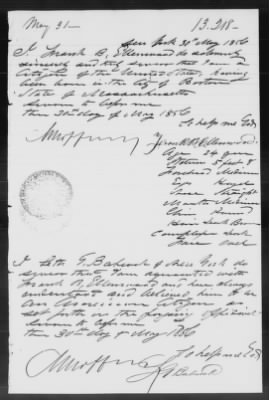 May 31— 13.218—
New York 30th May 1856
I Frank B. Ellenwood do solemnly
sincerely and truly swear that I am a
Citizen of the United States, having
been born in the city of Boston
State of Massachusetts
Sworn to before me
this 30th day of May 1856
So help me God
Frank B. Ellenwood
Age 24 years
Stature 5 feet 8
Forehead Medium
Eyes Hazel
Nose Straight
Mouth Medium
Chin Round
Hair Dark Brown
Complexion Dark
Face oval
I Seth G. Babcock of New York do
swear that I am acquainted with
Frank B. Ellenwood and have always
understood and believed him to be
an American citizen as
set forth in the foregoing affidavit
Sworn to before me
this 30th of May 1856
So help me God
Babcock